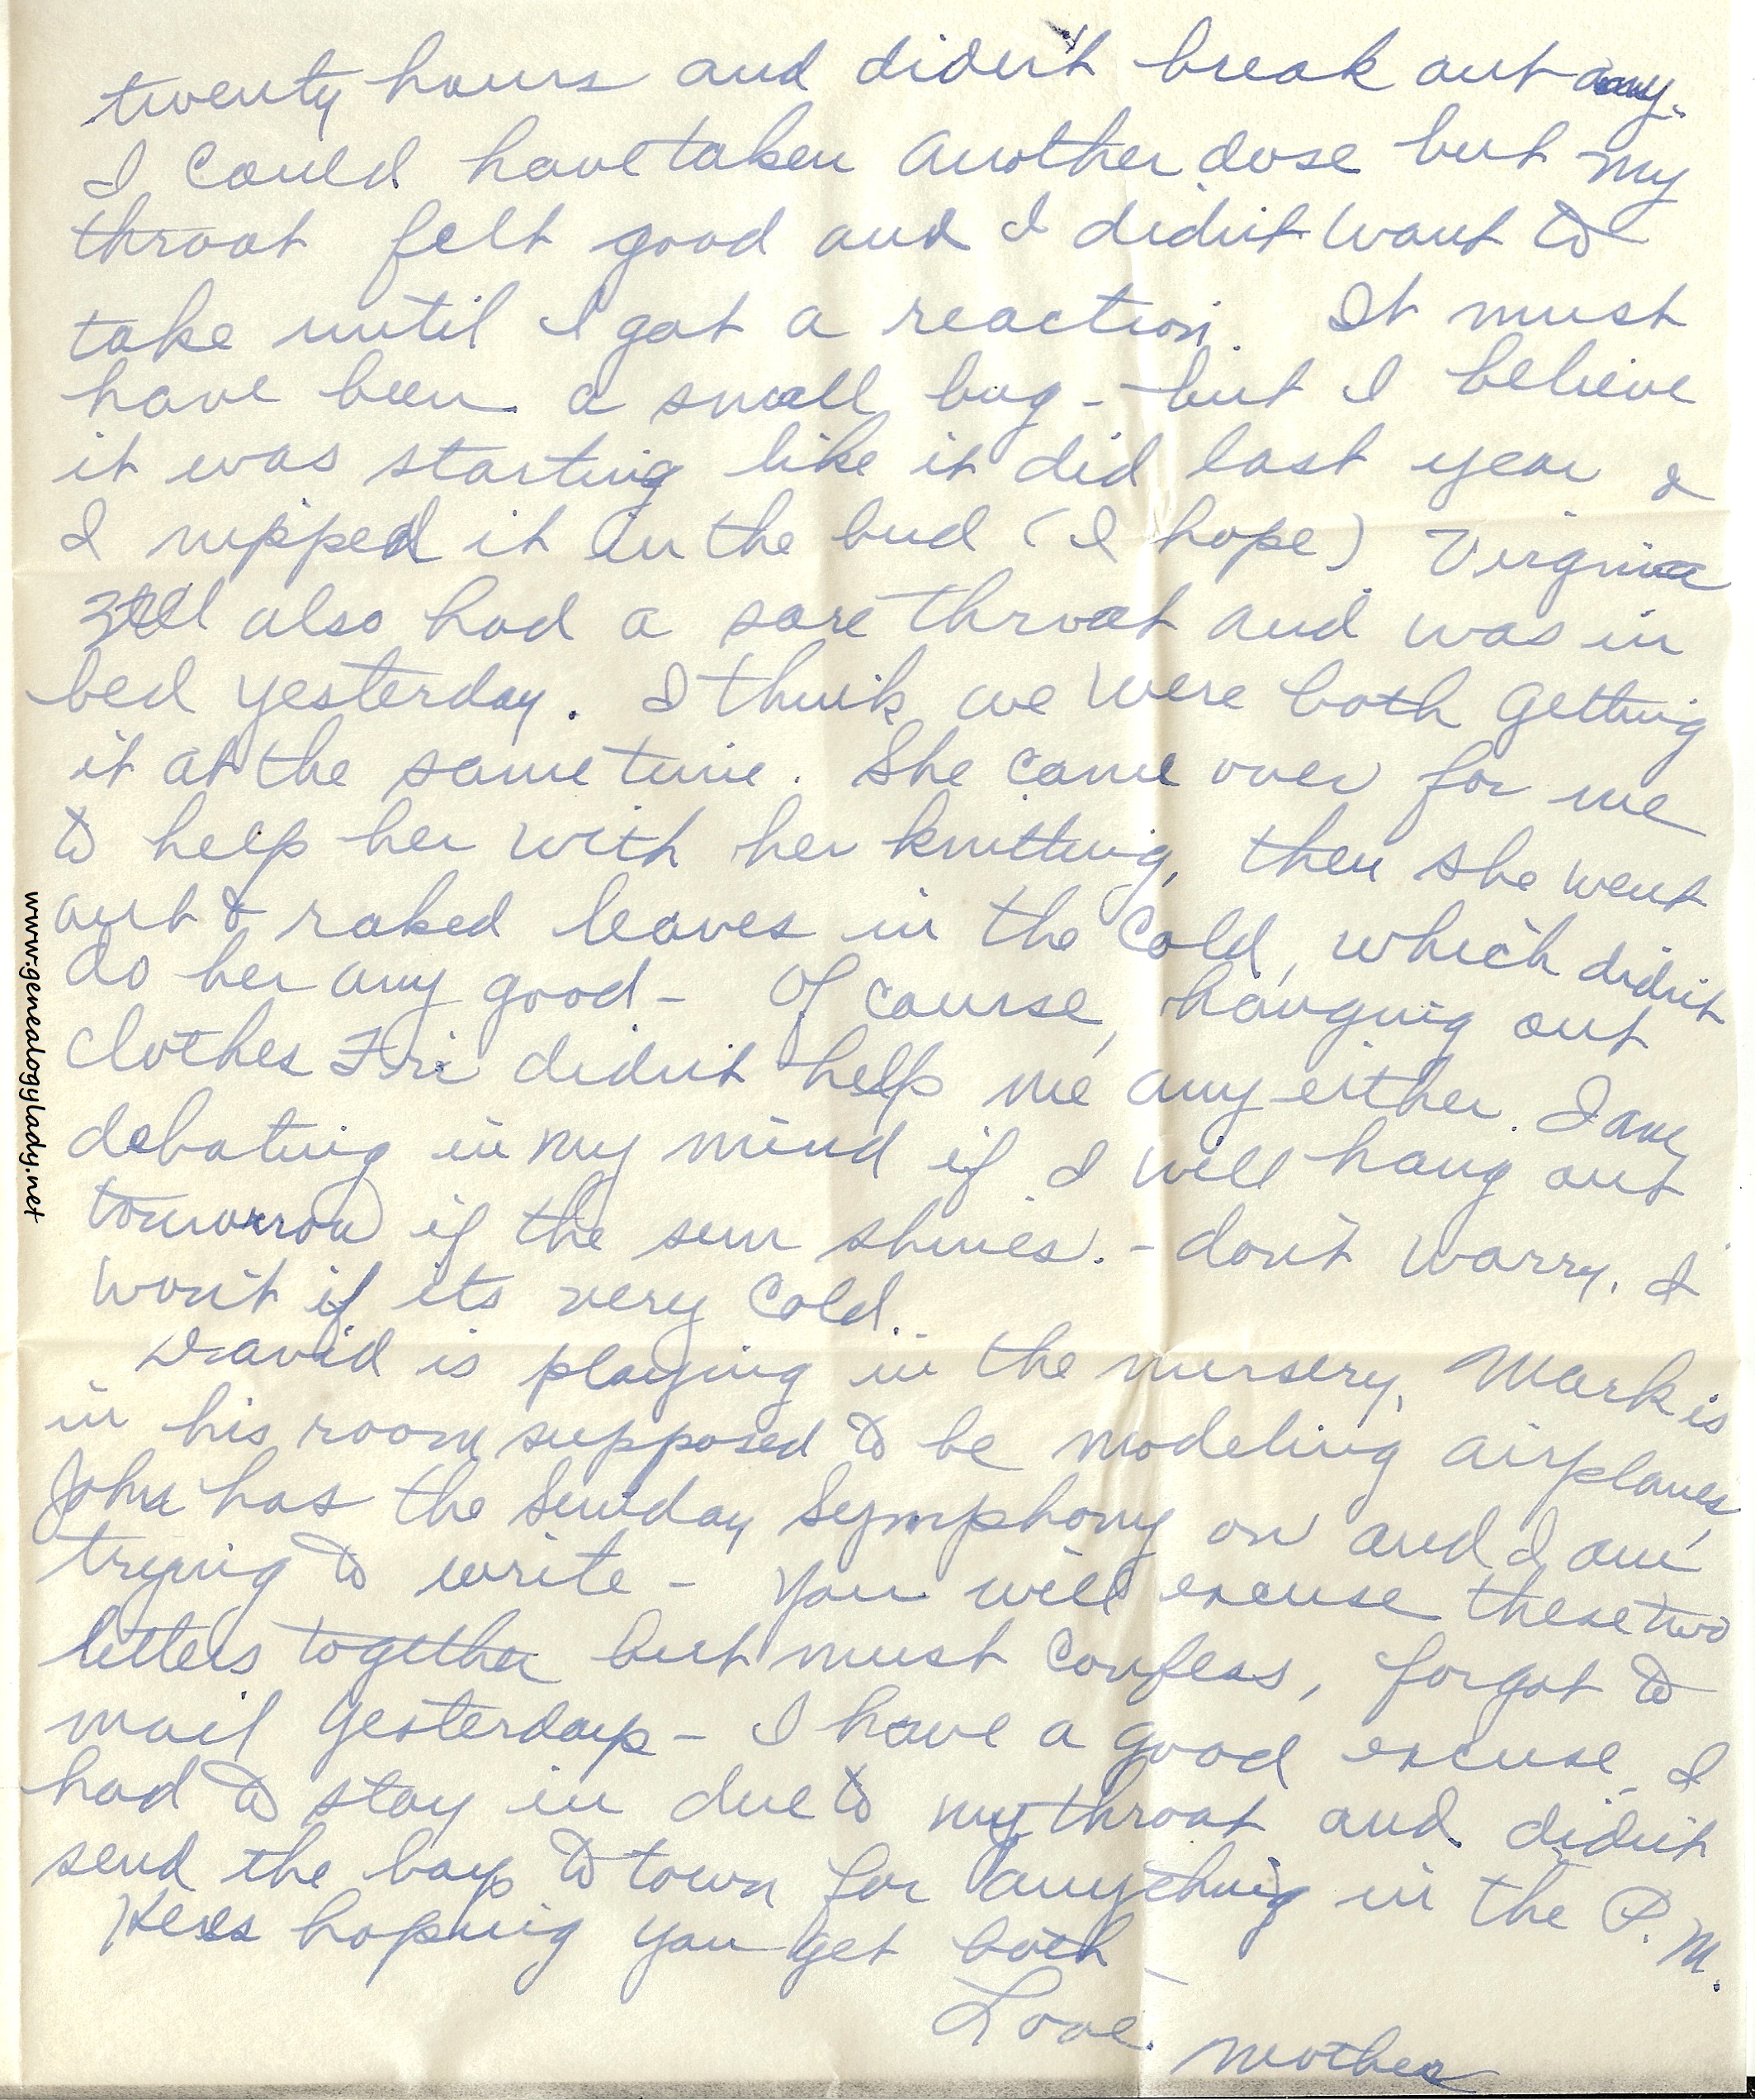 twenty hours and didn't break out any.
I could have taken another dose but my
throat felt good and I didn't want to
take until I got a reaction. It must
have been a small bug - but I believe
it was starting like it did last year &
I nipped it in the bud (I hope) Virginia
also had a sore throat and was in
bed yesterday. I think we were both getting
it at the same time. She came over for me
to help her with her knitting, then she went
out & raked leaves in the cold, which didn't
do her any good - Of course, hanging out
clothes Fri didn't help me any either. I am
debating in my mind if I will hang out
tomorrow if the sun shines. - don't worry, I
won't if its very cold.
David is playing in the nursery, Mark is
in his room supposed to be modeling airplanes,
John has the Sunday Symphony on and I am
trying to write - You will excuse these two
letters together but must confess, forgot to
mail yesterday - I have a good excuse, I
had to stay in due to my throat and didn't
send the boys to town for anything in the P.M.
Heres hoping you get both -
Love.
Mother
www.genealogylady.net